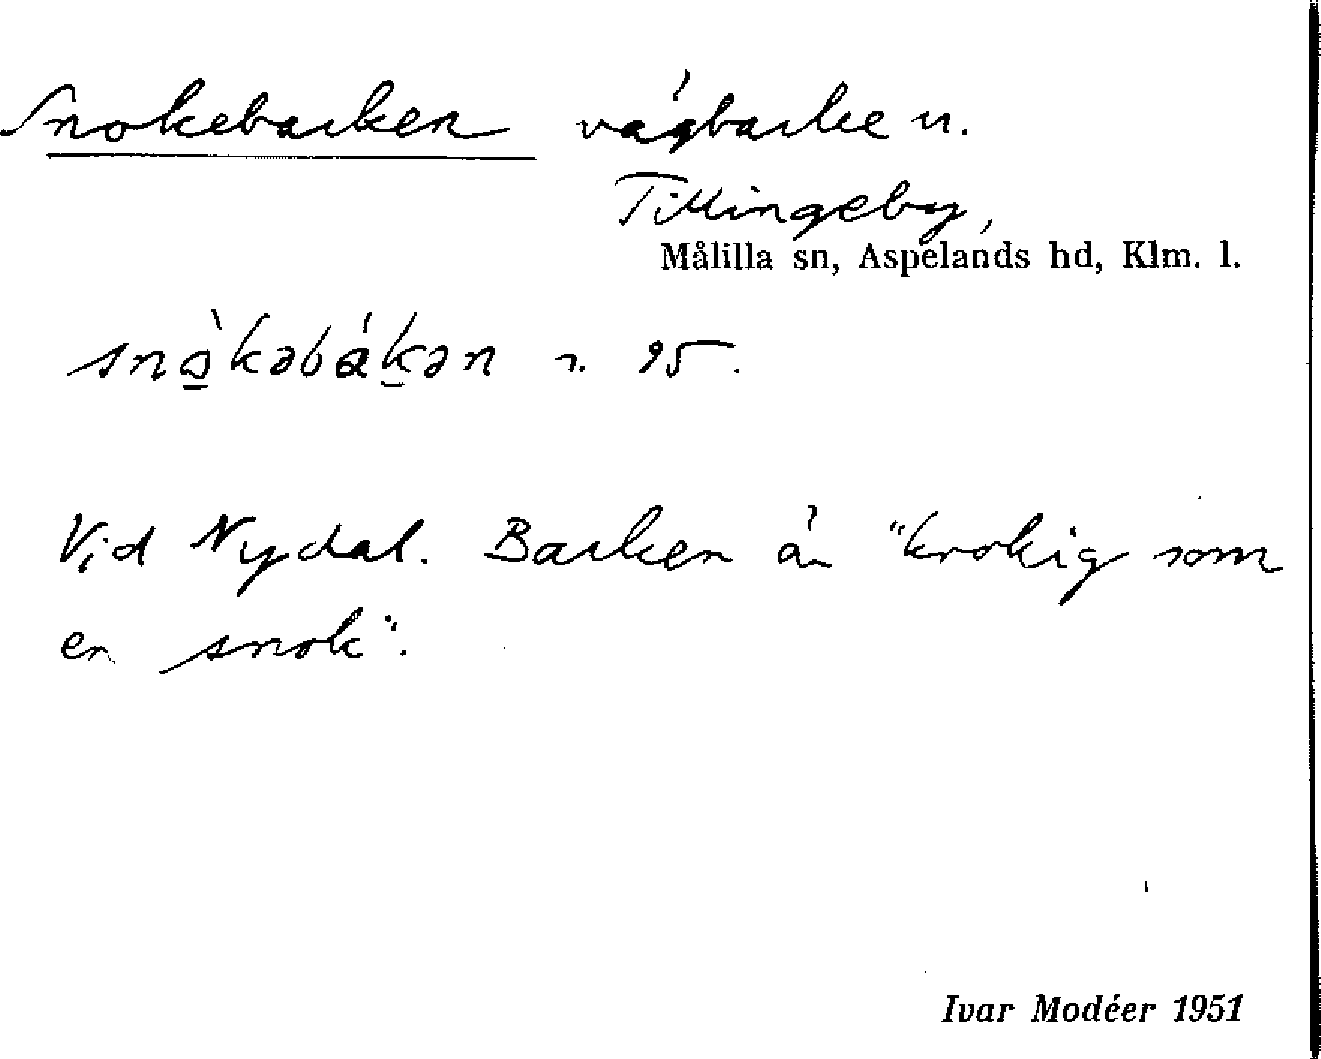 Snokebacken vägbacke n.
Tillingeby,
Målilla sn, Aspelands hd, Klm. l.
n. 95.
Vid Nydal. Backen är "krokig som
en snok".
Ivar Modéer 1951